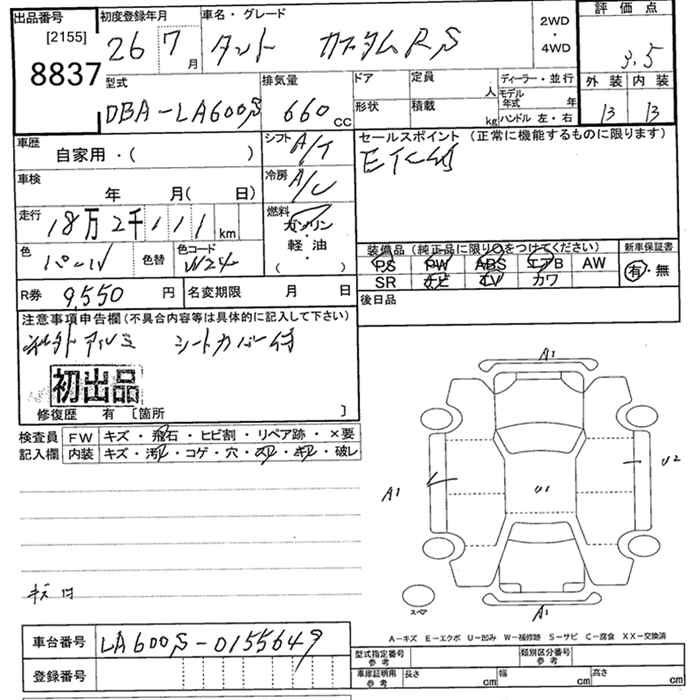 出品番号 初度登録年月 車名・グレード 2WD・4WD 評価点
[2155]
8837
26 7月 タント カスタムRS 3.5
型式 排気量 ドア 定員 人 ディーラー・並行 外装 内装
DBA-LA600S 660cc 形状 積載 kg モデル年式 年 13 13
ハンドル 左・右
車歴 シフト A/T セールスポイント (正常に機能するものに限ります)
自家用・( ) ETC付
車検 年 月( 日) 冷房 A/C
走行 18万2千111km 燃料 ガソリン・軽油 ( )
色 パール 色替 色コード W24
装備品 (純正品に限り○をつけてください) 新車保証書
PS PW ABS エアB AW 有・無
SR ナビ TV カワ
R券 9,550円 名変期限 月 日 後日品
注意事項申告欄 (不具合内容等は具体的に記入して下さい)
社外アルミ シートカバー付
初出品
修復歴 有 [箇所 ]
検査員 FW キズ・飛石・ヒビ割・リペア跡・×要
記入欄 内装 キズ・汚レ・コゲ・穴・スレ・キレ・破レ
A1
A1 U1 U2
キズ凹
スペア
A1
A－キズ E－エクボ U－凹み W－補修跡 S－サビ C－腐食 XX－交換済
車台番号 LA600S-0155649
型式指定番号 参考 類別区分番号 参考
登録番号 車庫証明用 参考 長さ cm 幅 cm 高さ cm